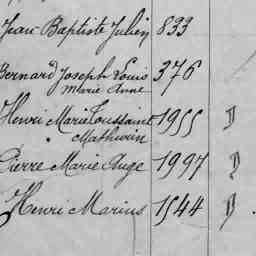 Jean Baptiste Julien 833
Bernard Joseph Louis 376
Marie Anne
Henri Marie Toussaint 1955 D
Mathurin
Pierre Marie Ange 1997 D
Henri Marius 1544 D